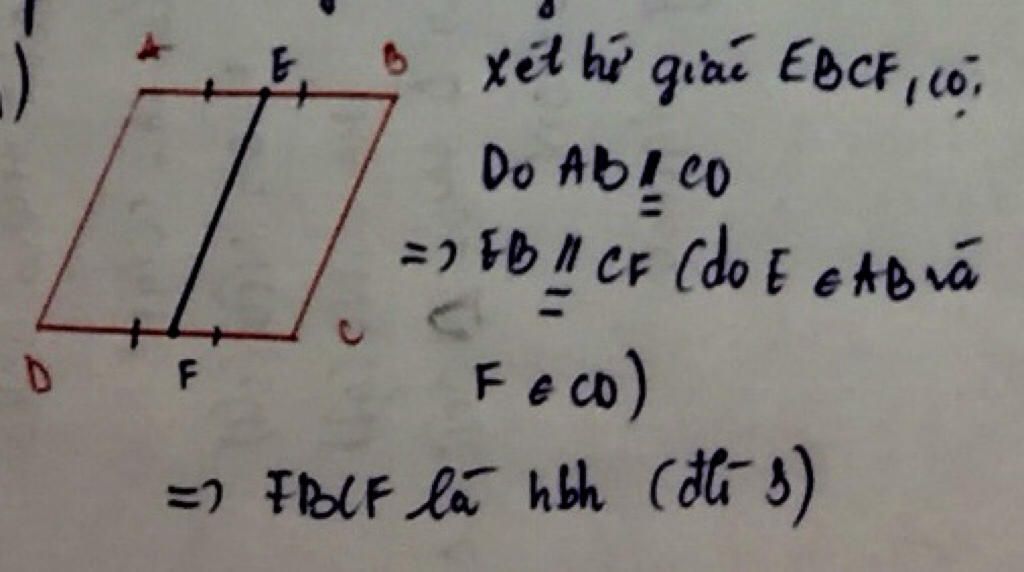 )
A E B
Xét tứ giác EBCF, có:
Do AB // = CD
=> EB // = CF (do E ∈ AB và
F ∈ CD)
D F C
=> EBCF là hbh (đlí 3)